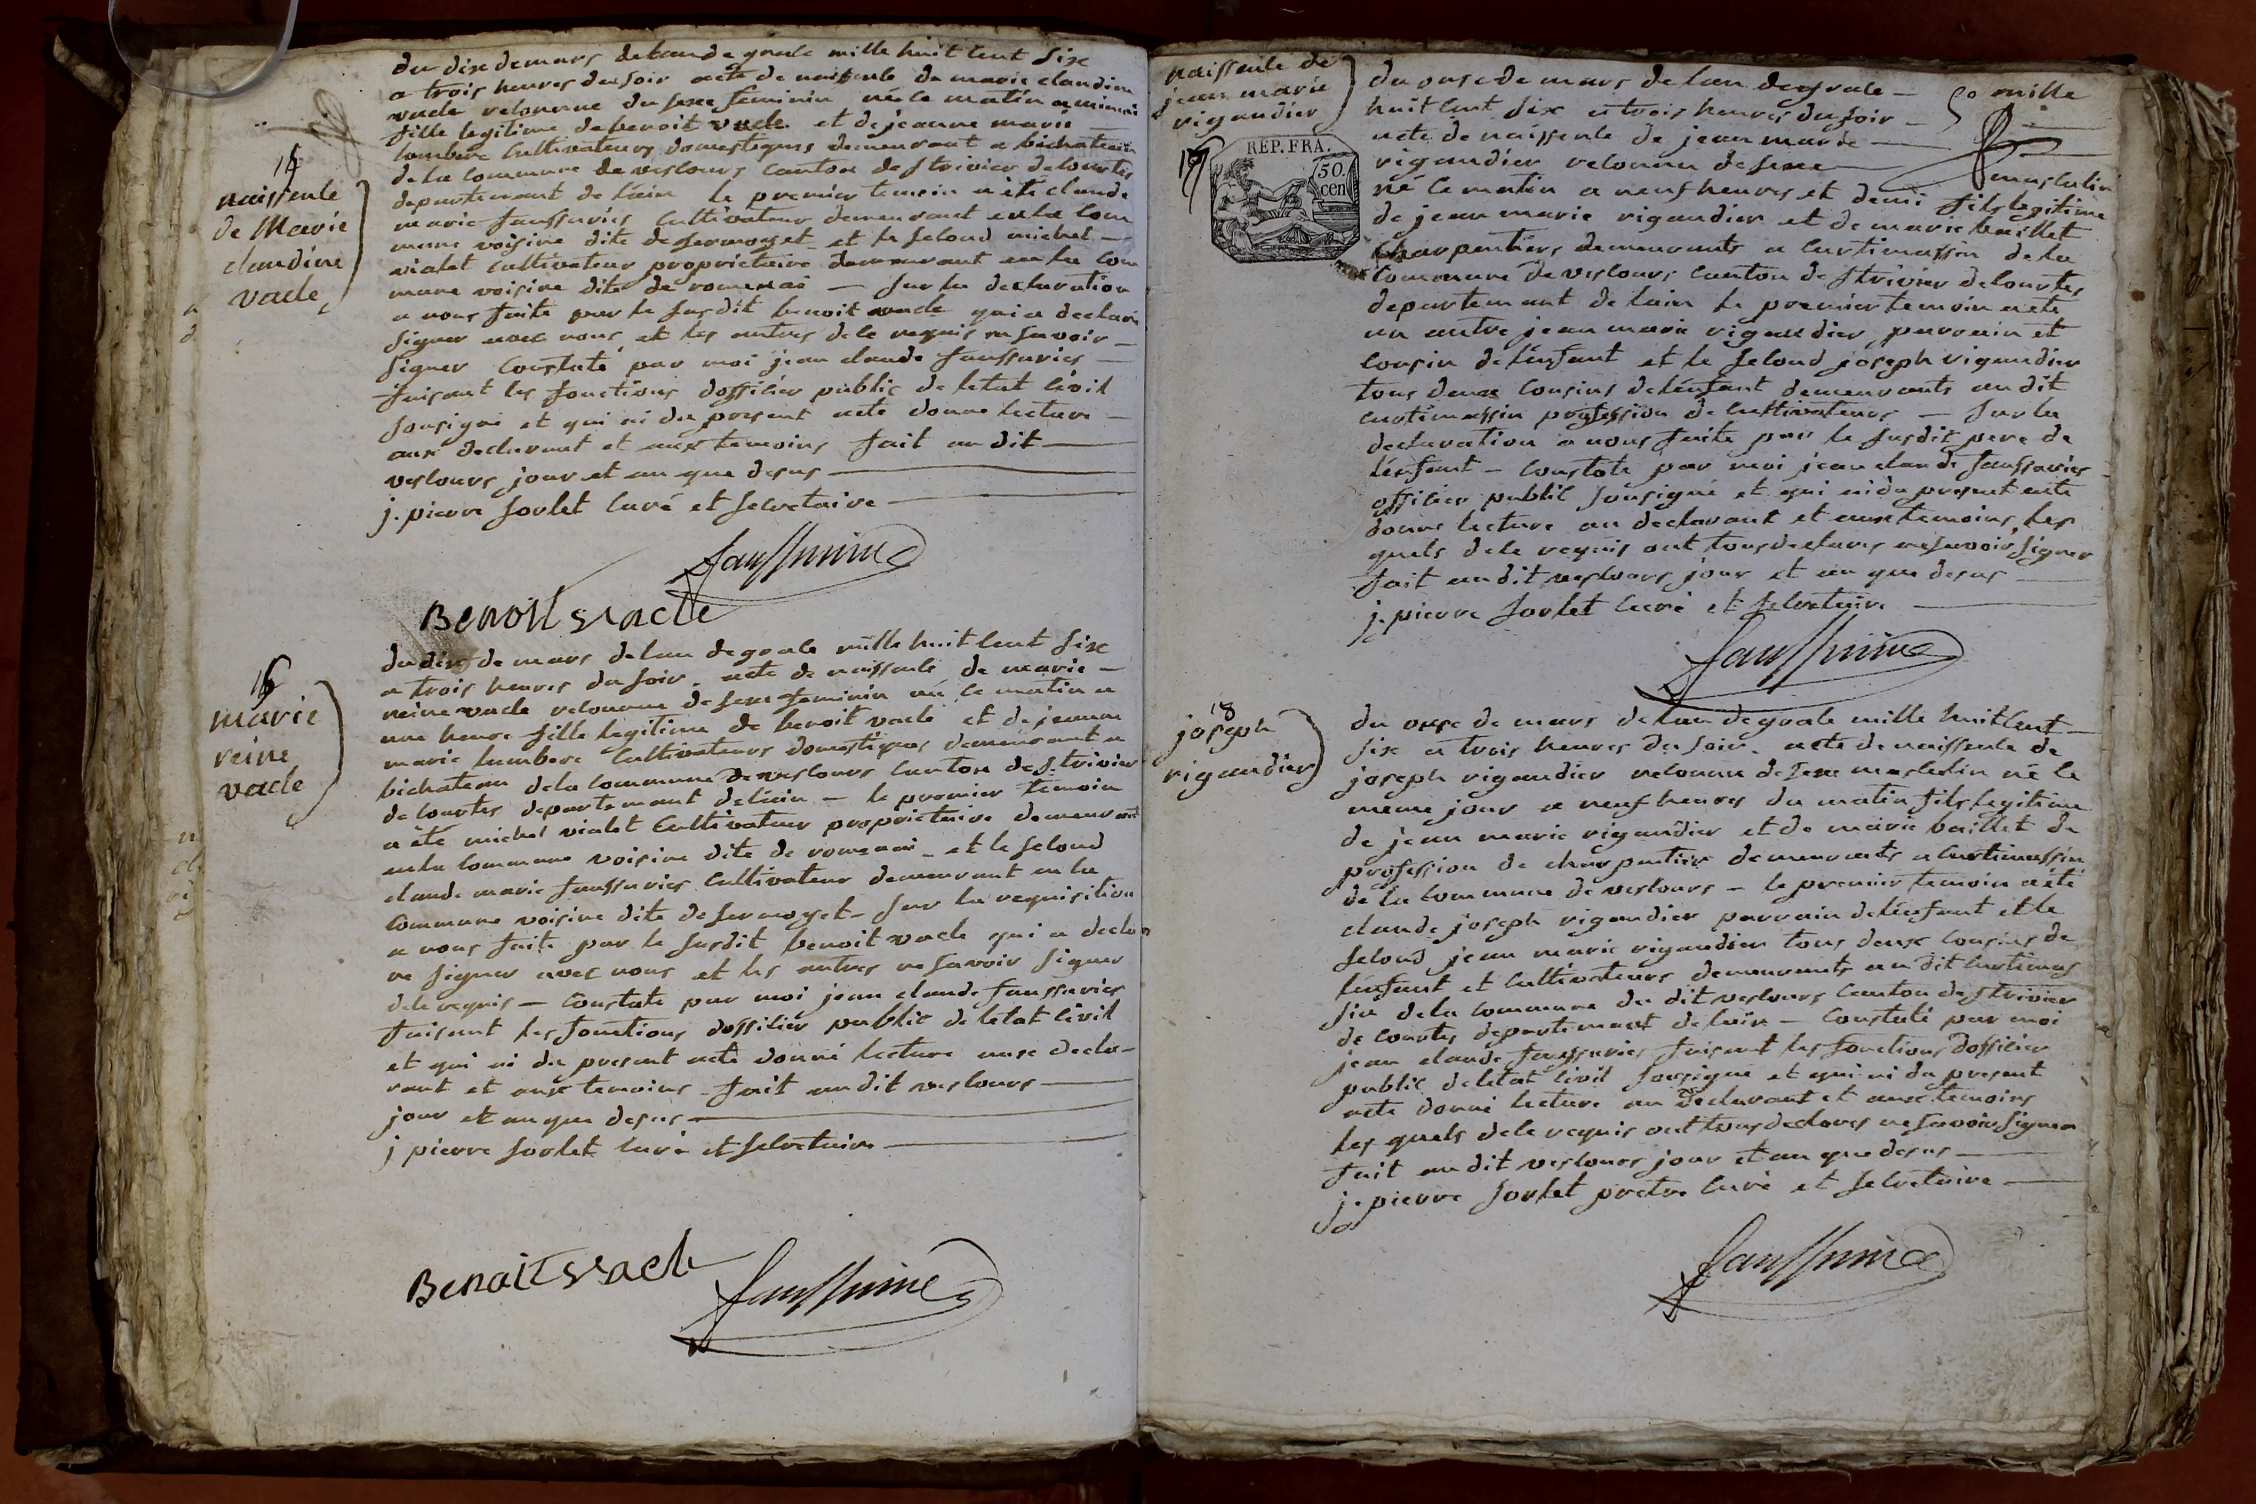 du dix de mars de lan de grace mille huit cent six
a trois heures du soir acte de naissence de marie claudine
vacle reconnue du sexe feminin née le matin a minuit
fille legitime de benoit vacle et de jeanne marie
lambere cultivateurs domestiques demeurant a bichateau
de la commune de vescours canton de st trivier de courtes
departement de lain le premier temoin a été claude
marie faussuries cultivateur demeurant en la com
mune voisine dite de sermoyet et le second michel
vialet cultivateur proprietaire demeurant en la com
mune voisine dite de romenai – sur la declaration
a nous faite par le susdit benoit vacle qui a declaré
signer avec nous et les autres de ce requis ne savoir
signer constaté par moi jean claude faussuries
faisant les fonctions dofficier public de letat civil
sousigné et qui ai du present acte donne lecture
aux declarant et aux temoins fait au dit
vescours jour et an que desus
j. pierre sorlet curé et secretaire
16
naissence
de Marie
claudine
vacle
BENOIT vacle
du dix de mars de lan de grace mille huit cent six
a trois heures du soir. acte de naissence de marie
reine vacle reconnue de sexe feminin né ce matin a
une heure fille legitime de benoit vacle et de jeanne
marie lambere cultivateurs domestiques demeurant a
bichateau de la commune de vescours canton de st. trivier
de courtes departement de lain – le premier temoin
a été michel vialet cultivateur proprietaire demeurant
en la commune voisine dite de romenai – et le second
claude marie faussuries cultivateur demeurant en la
commune voisine dite de sermoyet – sur la requisition
a nous faite par le susdit benoit vacle qui a decla
re signer avec nous et les autres ne savoir signer
de ce requis – constaté par moi jean claude faussuries
faisant les fonctions dofficier public de letat civil
et qui ai du present acte donné lecture aux decla-
rant et aux temoins fait au dit vescours
jour et an que desus
j pierre sorlet curé et secretaire
marie
reine
vacle
Benoit vacle
naissence de
jean marie
rigaudier
17
REP. FRA.
50.
cen
du onse de mars de lan de grace – mille
huit cent six a trois heures du soir
acte de naissence de jean marie
rigaudier reconnu de sexe masculin
né ce matin a neuf heures et demi fils legitime
de jean marie rigaudier et de marie baillet
charpentiers demeurants a curtimassin de la
commune de vescours canton de st trivier de courtes
departement de lain le premier temoin a été
un autre jean marie rigaudier parrain et
cousin de lenfant et le second joseph rigaudier
tous deux cousins de lenfant demeurants au dit
curtimassin profession de cultivateurs – sur la
declaration a nous faite par le susdit pere de
lenfant – constaté par moi jean claude faussuries
officier public sousigné et qui ai du present acte
donne lecture au declarant et aux temoins les
quels de ce requis ont tous declares ne savoir signer
fait au dit vescours jour et an que desus
j. pierre sorlet curé et secretaire
18
joseph
rigaudier
du onse de mars de lan de grace mille huit cent
six a trois heures du soir. acte de naissence de
joseph rigaudier reconnu de sexe masculin né le
meme jour a neuf heures du matin fils legitime
de jean marie rigaudier et de marie baillet de
profession de charpentier demeurants a curtimassin
de la commune de vescours – le premier temoin a été
claude joseph rigaudier parrain de lenfant et le
second jean marie rigaudier tous deux cousins de
lenfant et cultivateurs demeurants au dit curtimas
sin de la commune du dit vescours canton de st trivier
de courtes departement de lain – constaté par moi
jean claude faussuries faisant les fonctions dofficier
public de letat civil sousigné et qui ai du present
acte donné lecture au declarant et aux temoins
les quels de ce requis ont tous declares ne savoir signer
fait au dit vescours jour et an que desus
j. pierre sorlet pretre curé et secretaire